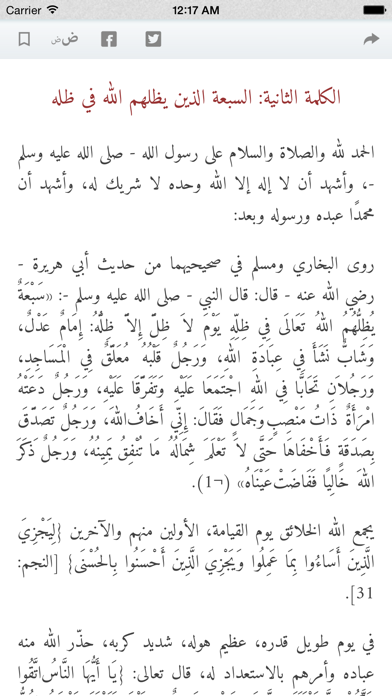 Carrier 12:17 AM
ض ض
الكلمة الثانية: السبعة الذين يظلهم الله في ظله
الحمد لله والصلاة والسلام على رسول الله - صلى الله عليه وسلم
-، وأشهد أن لا إله إلا الله وحده لا شريك له، وأشهد أن
محمدًا عبده ورسوله وبعد:
روى البخاري ومسلم في صحيحيهما من حديث أبي هريرة -
رضي الله عنه - قال: قال النبي - صلى الله عليه وسلم -: «سَبْعَةٌ
يُظِلُّهُمُ اللهُ تَعَالَى فِي ظِلِّهِ يَوْمَ لاَ ظِلَّ إِلاَّ ظِلُّهُ: إِمَامٌ عَدْلٌ،
وَشَابٌّ نَشَأَ فِي عِبَادَةِ اللهِ، وَرَجُلٌ قَلْبُهُ مُعَلَّقٌ فِي الْمَسَاجِدِ،
وَرَجُلاَنِ تَحَابَّا فِي اللهِ اجْتَمَعَا عَلَيْهِ وَتَفَرَّقَا عَلَيْهِ، وَرَجُلٌ دَعَتْهُ
امْرَأَةٌ ذَاتُ مَنْصِبٍ وَجَمَالٍ فَقَالَ: إِنِّي أَخَافُ اللهَ، وَرَجُلٌ تَصَدَّقَ
بِصَدَقَةٍ فَأَخْفَاهَا حَتَّى لاَ تَعْلَمَ شِمَالُهُ مَا تُنْفِقُ يَمِينُهُ، وَرَجُلٌ ذَكَرَ
اللهَ خَالِيًا فَفَاضَتْ عَيْنَاهُ» (¬1).
يجمع الله الخلائق يوم القيامة، الأولين منهم والآخرين {لِيَجْزِيَ
الَّذِينَ أَسَاءُوا بِمَا عَمِلُوا وَيَجْزِيَ الَّذِينَ أَحْسَنُوا بِالحُسْنَى} [النجم:
31].
في يوم طويل قدره، عظيم هوله، شديد كربه، حذّر الله منه
عباده وأمرهم بالاستعداد له، قال تعالى: {يَا أَيُّهَا النَّاسُ اتَّقُوا